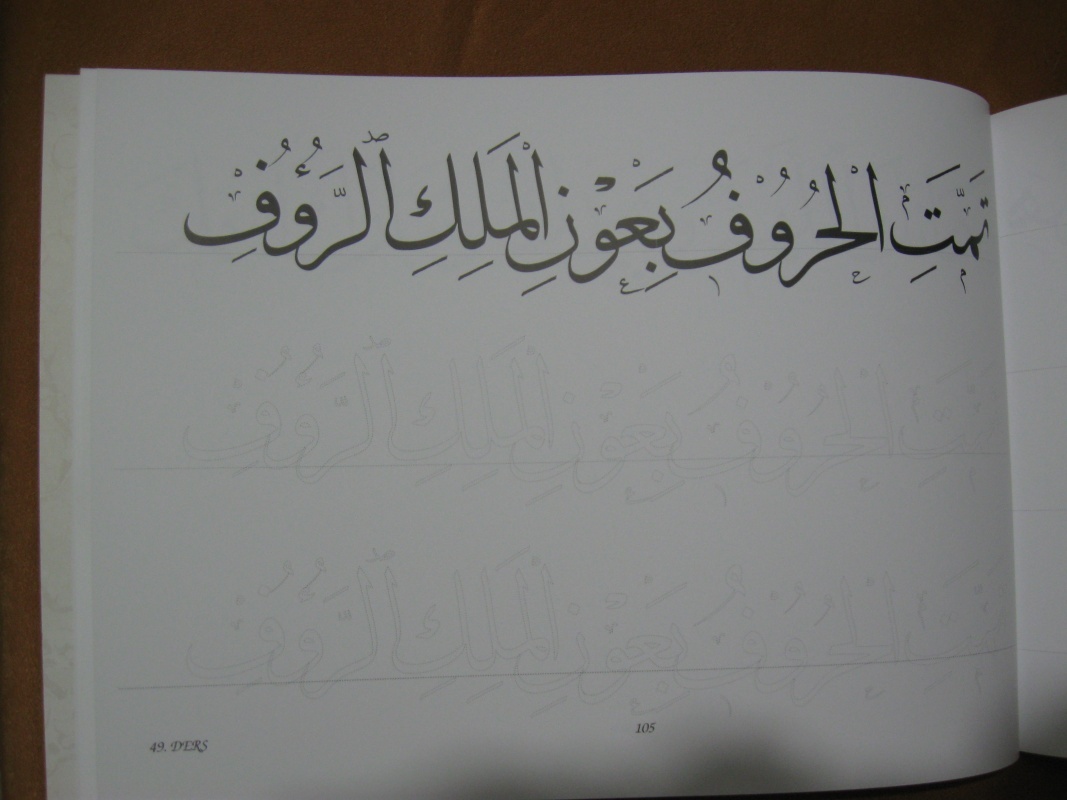 تَمَّتِ الْحُرُوفُ بِعَوْنِ الْمَلِكِ ٱلرَّؤُفِ
تَمَّتِ الْحُرُوفُ بِعَوْنِ الْمَلِكِ ٱلرَّؤُفِ
تَمَّتِ الْحُرُوفُ بِعَوْنِ الْمَلِكِ ٱلرَّؤُفِ
105
49. DERS